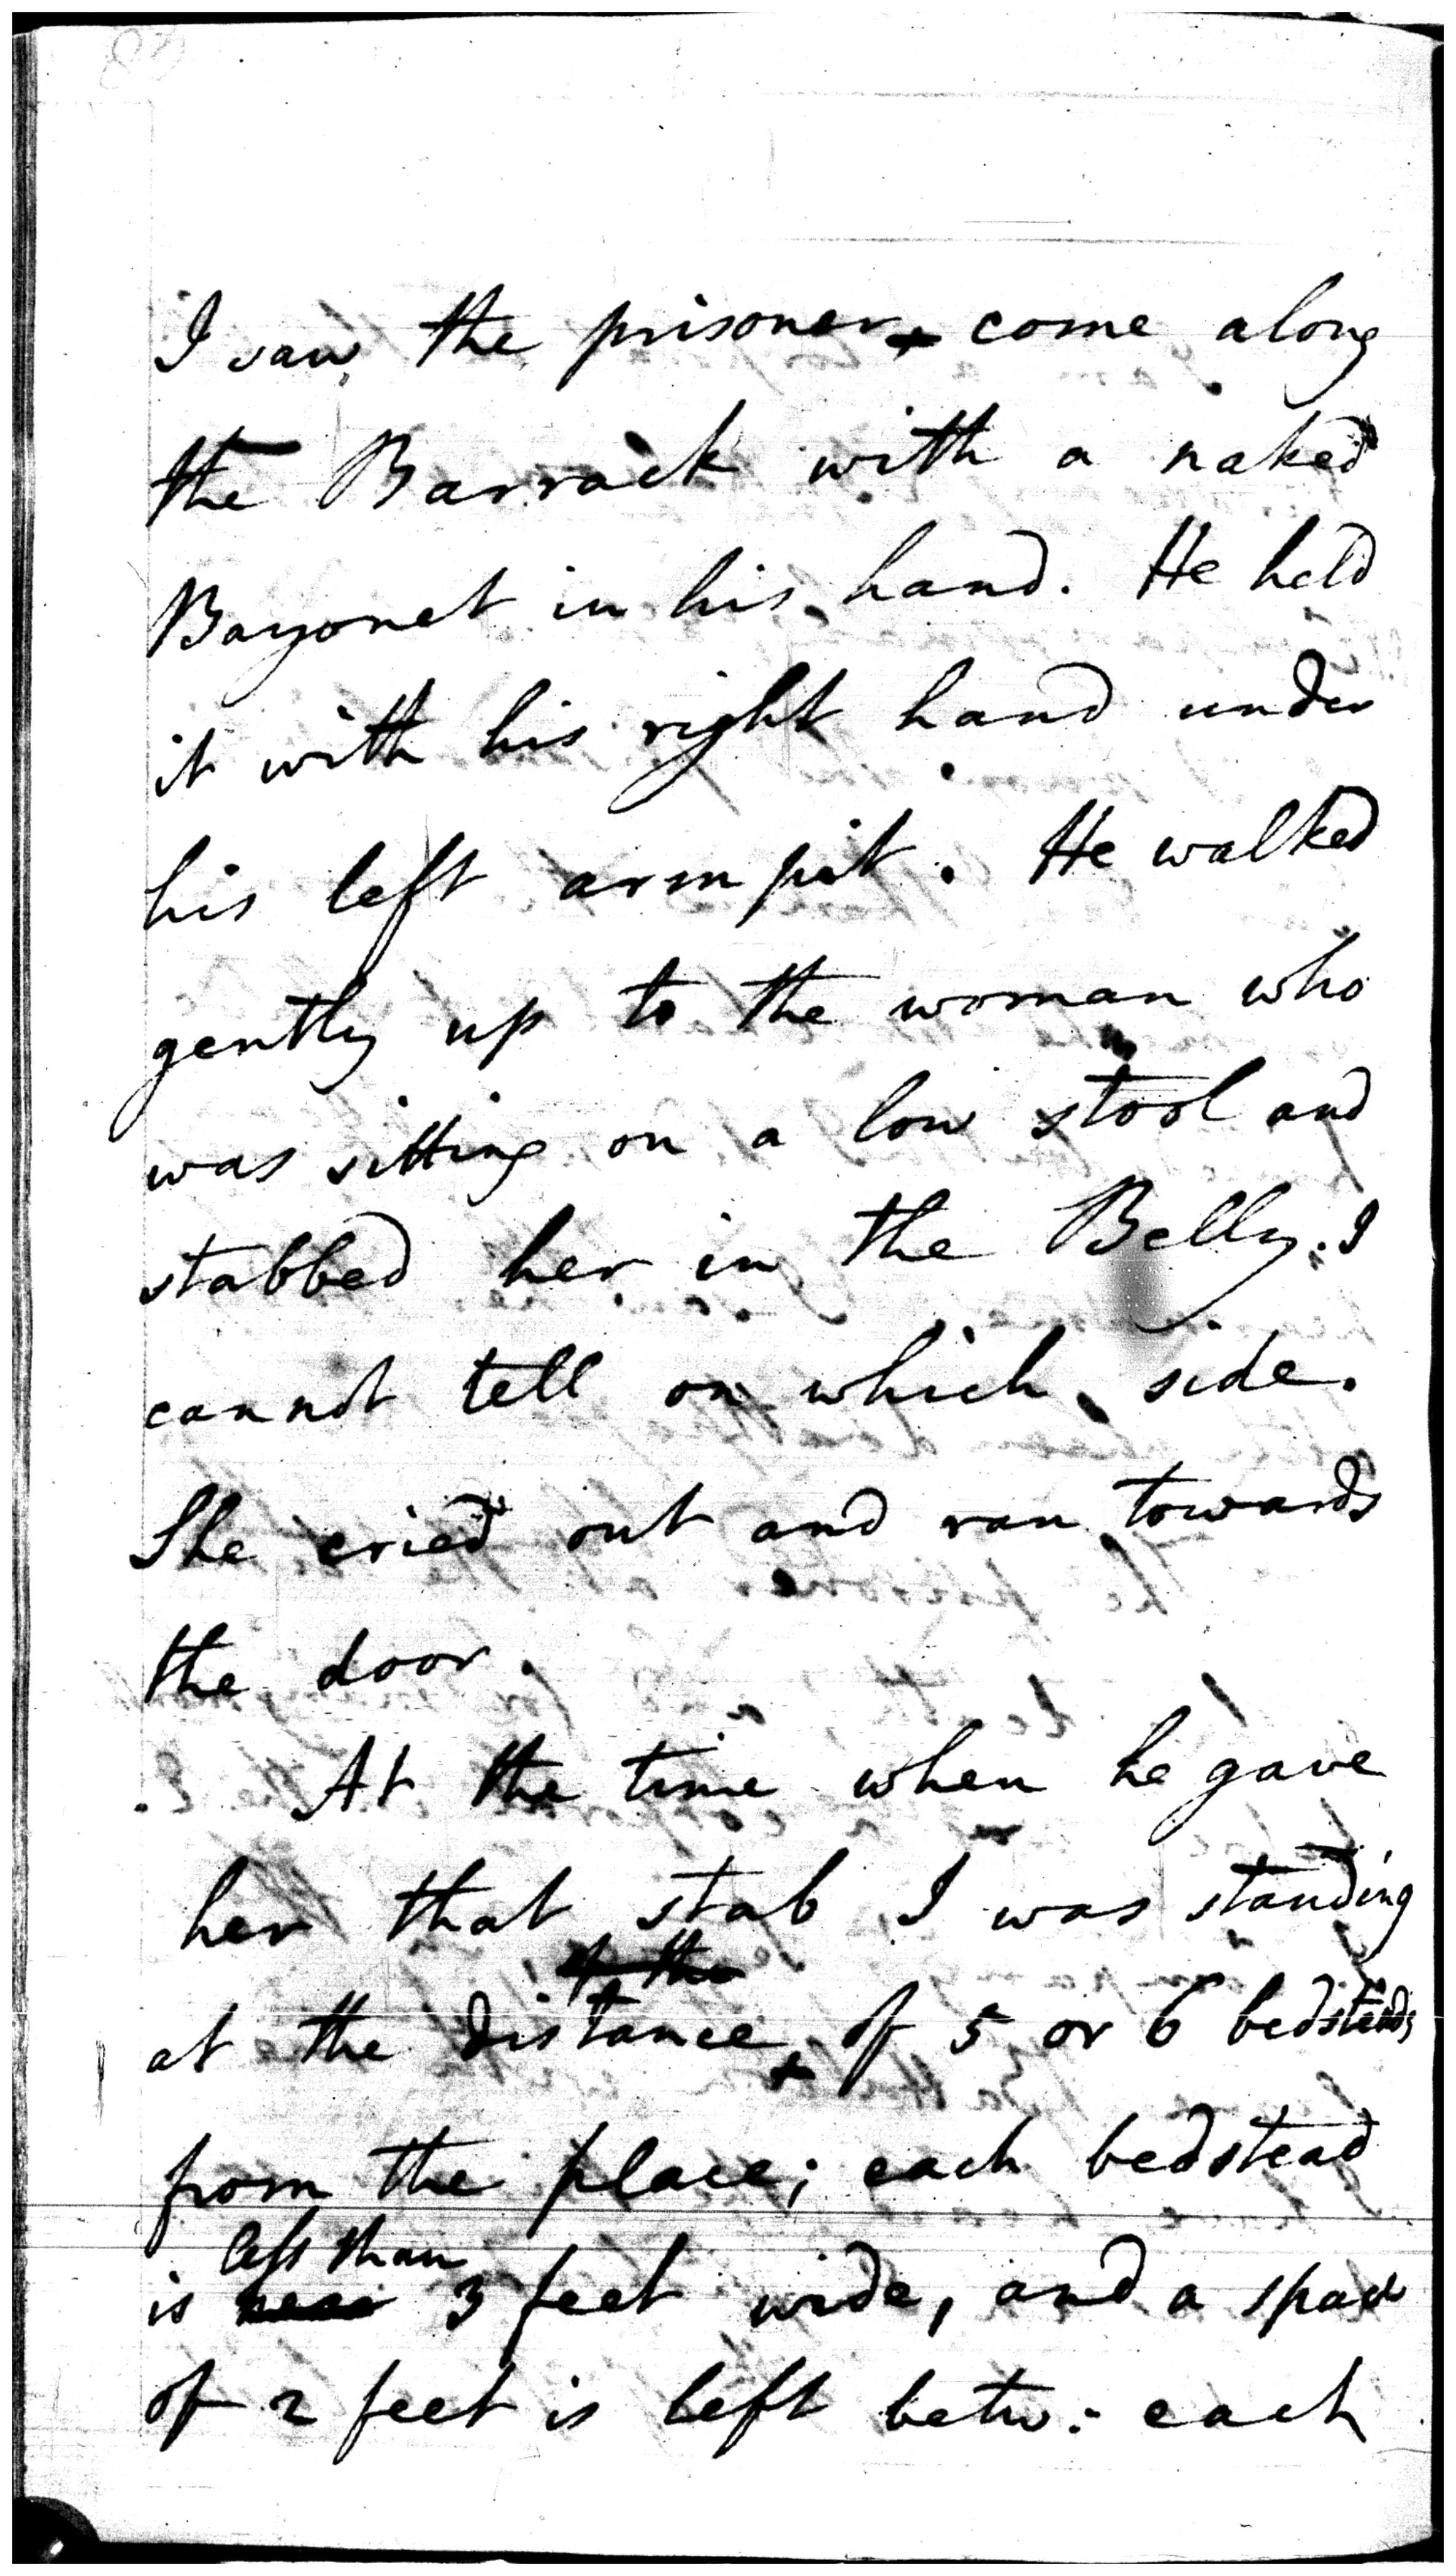 I saw the prisoner + come along
the Barrack with a naked
Bayonet in his hand. He held
it with his right hand under
his left arm pit. He walked
gently up to the woman who
was sitting on a low stool and
stabbed her in the Belly. I
cannot tell on which side.
She cried out and ran towards
the door.
At the time when he gave
her that stab I was standing
of the
at the distance + of 5 or 6 bedsteads
from the place; each bedstead
less than
is 3 feet wide, and a space
of 2 feet is left betw: each